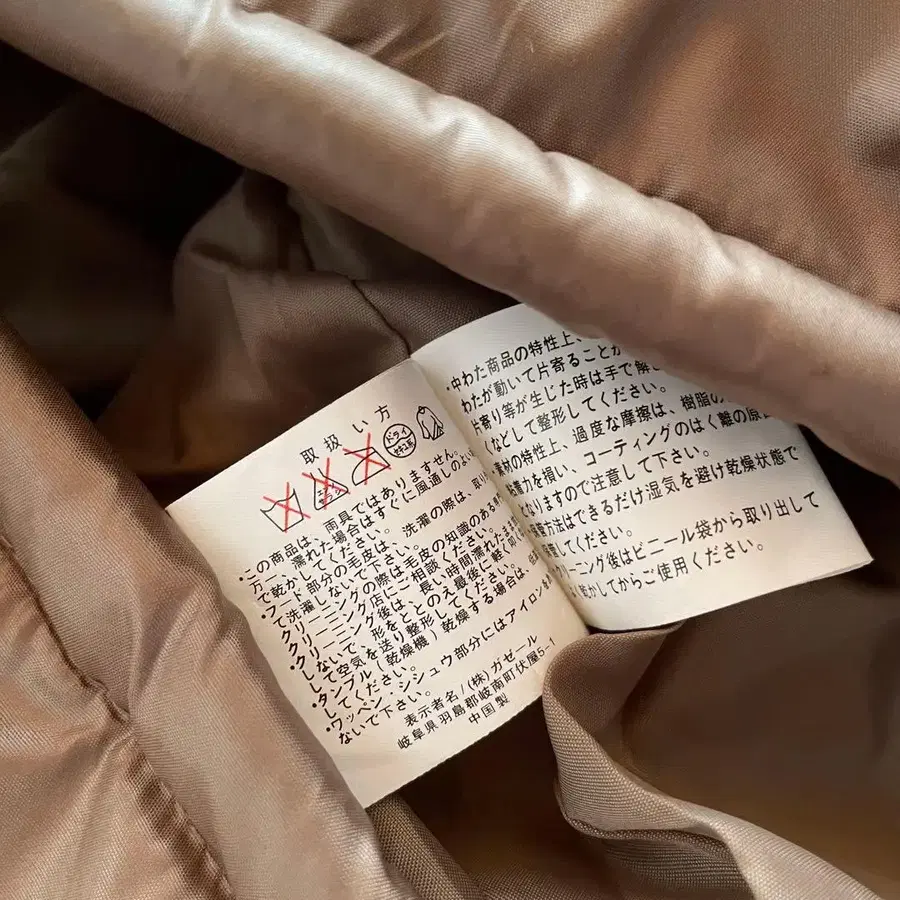 取扱い方
エンソ
サラシ
ドライ
セキユ系
・この商品は、雨具ではありません。
万一、濡れた場合はすぐに風通しのよい
で乾かしてください。
・フード部分の毛皮は、洗濯の際は、取り
て洗濯しないで下さい。
クリーニングの際は毛皮の知識のある専
クリーニング店にご相談ください。
・クリーニング後は、長い時間濡れたまま放
しないで、形をととのえ最後に軽く叩
して空気を送り整形してください。
・タンブル(乾燥機)乾燥する場合は、
してください。
・ワッペン、シシュウ部分にはアイロンを
ないで下さい。
表示者名/(株)ガゼール
岐阜県羽島郡岐南町伏屋5-1
中国製
・中わた商品の特性上、
わたが動いて片寄ることが
片寄り等が生じた時は手で解
くなどして整形してください。
素材の特性上、過度な摩擦は、樹脂の
着力を損い、コーティングのはく離の原因
となりますので注意して下さい。
保管方法はできるだけ湿気を避け乾燥状態で
保管してください。
クリーニング後はビニール袋から取り出して
乾かしてからご使用ください。